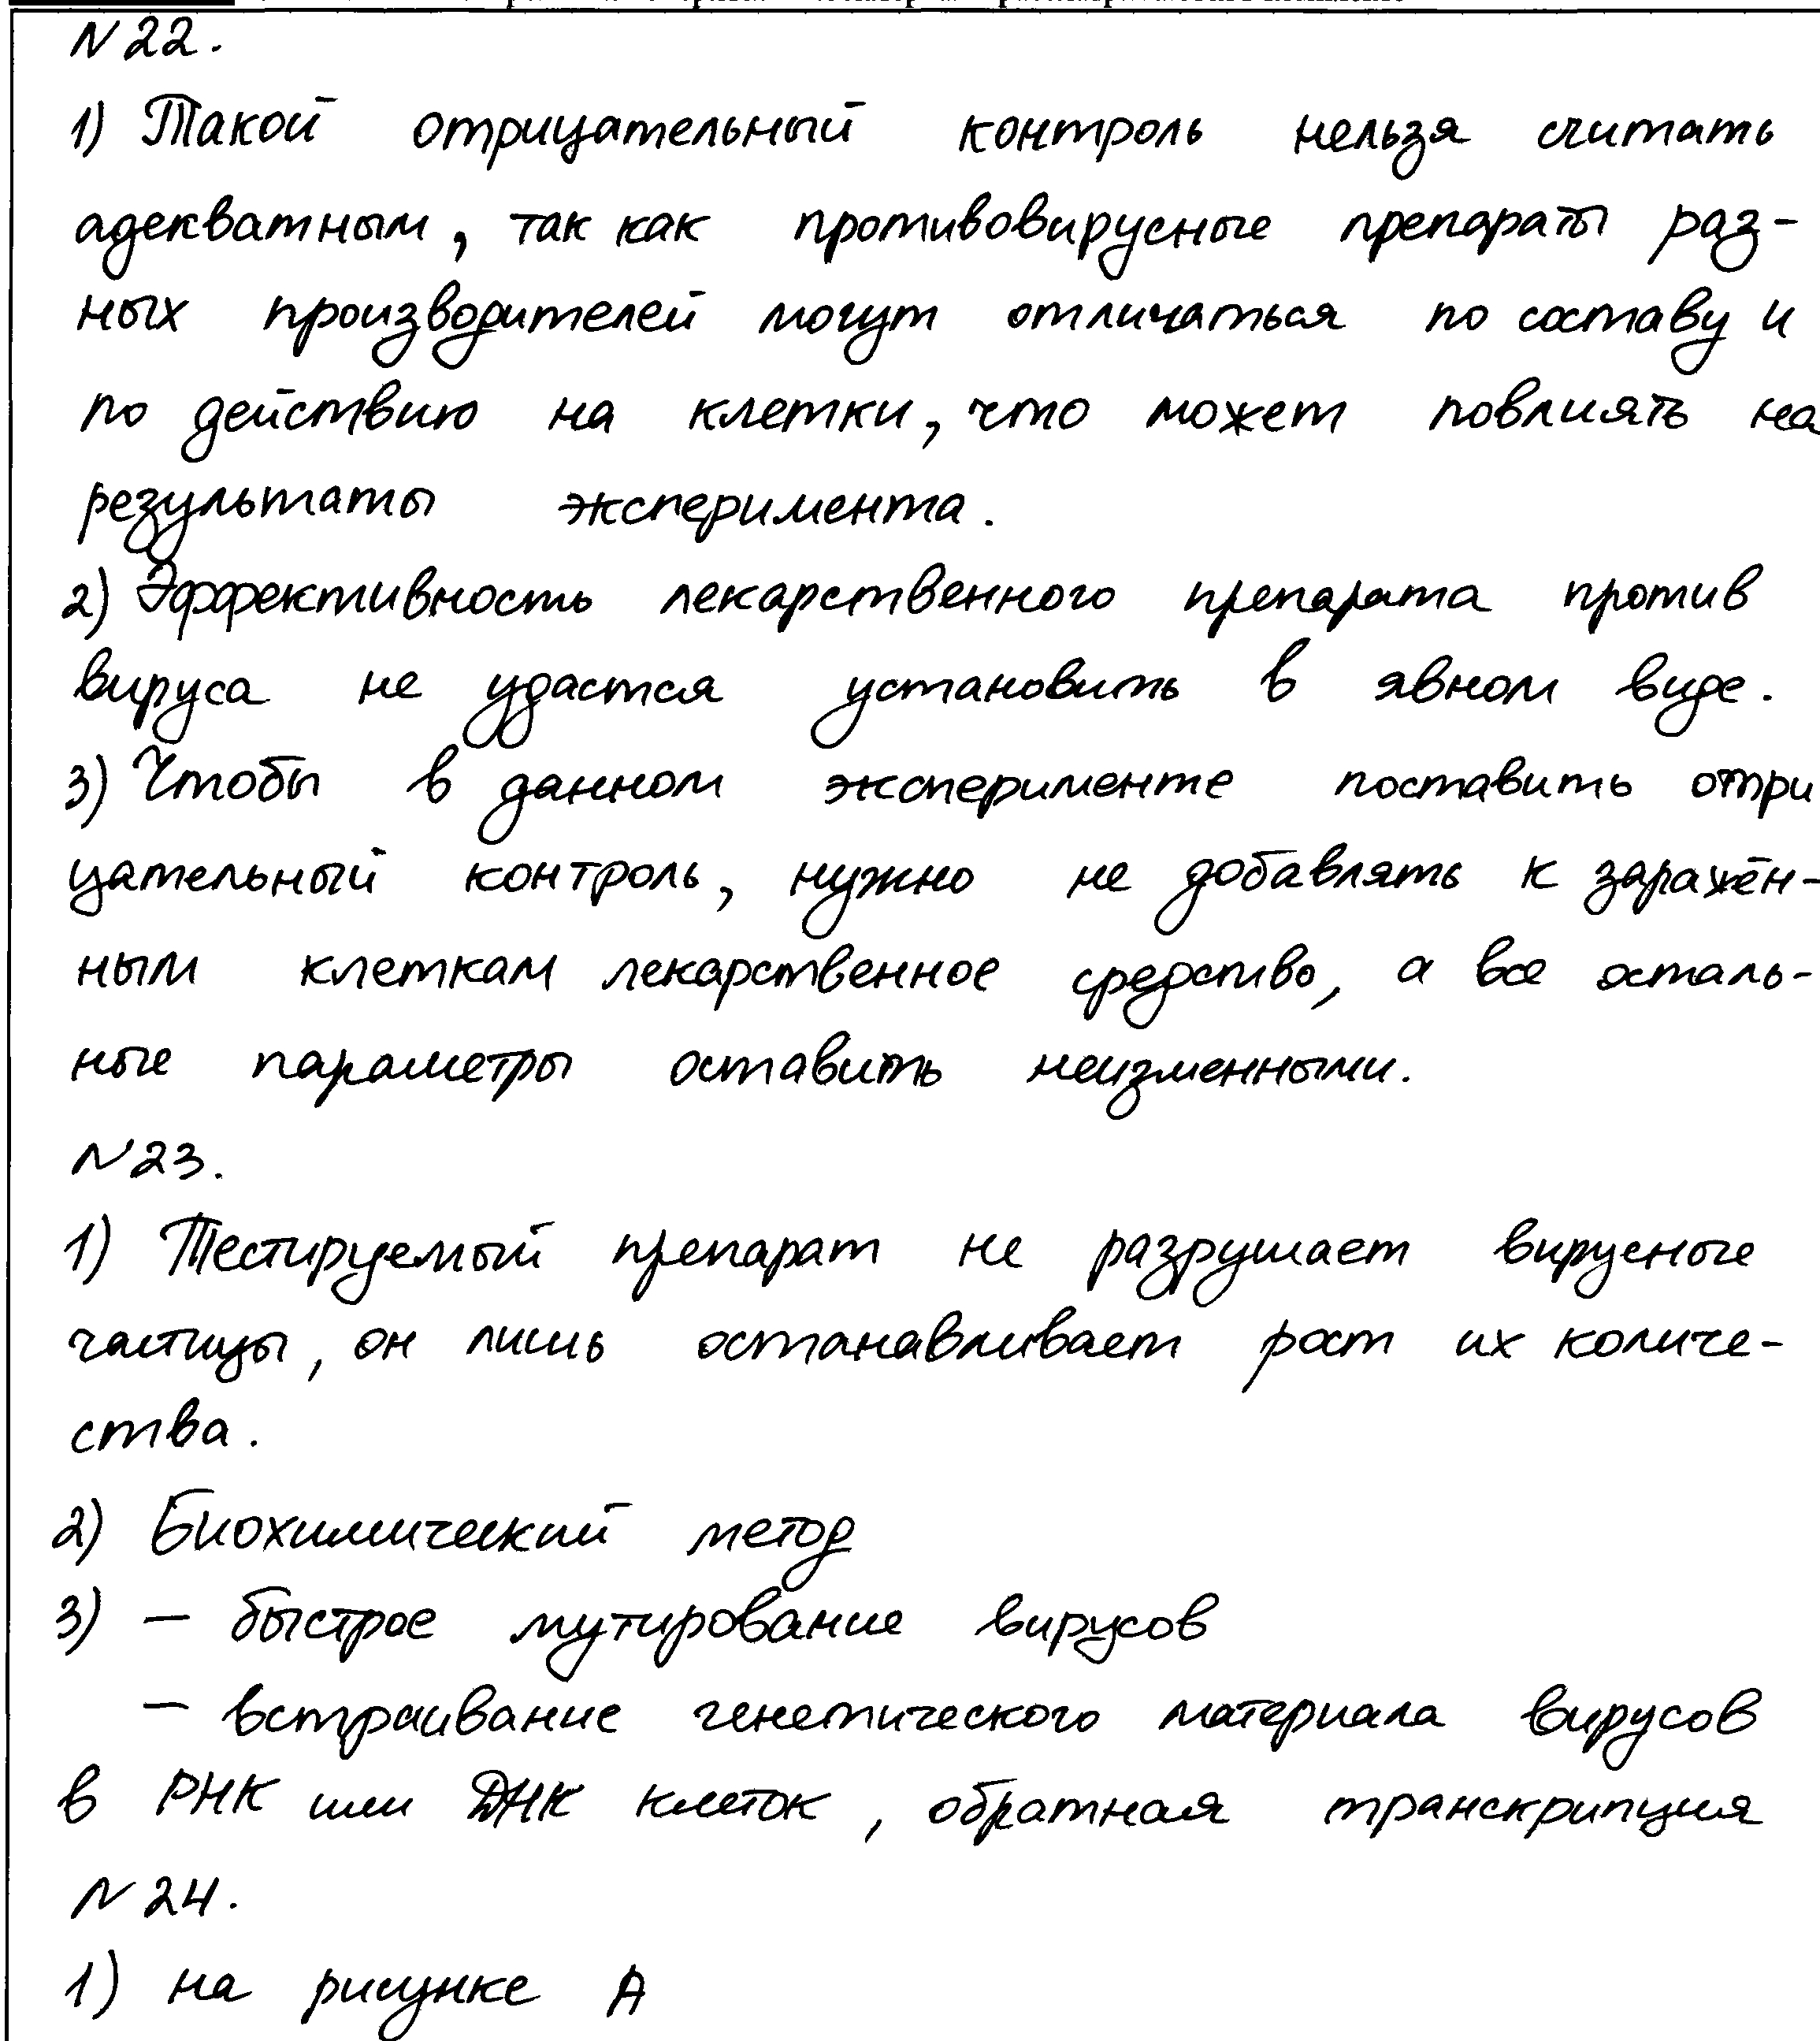 N22.
1) Такой отрицательный контроль нельзя считать
адекватным, так как противовирусные препараты раз-
ных производителей могут отличаться по составу и
по действию на клетки, что может повлиять на
результаты эксперимента.
2) Эффективность лекарственного препарата против
вируса не удастся установить в явном виде.
3) Чтобы в данном эксперименте поставить отри
цательный контроль, нужно не добавлять к заражён-
ным клеткам лекарственное средство, а все осталь-
ные параметры оставить неизменными.
N23.
1) Тестируемый препарат не разрушает вирусные
частицы, он лишь останавливает рост их количе-
ства.
2) Биохимический метод
3) – быстрое мутирование вирусов
– встраивание генетического материала вирусов
в РНК или ДНК клеток, обратная транскрипция
N24.
1) на рисунке А